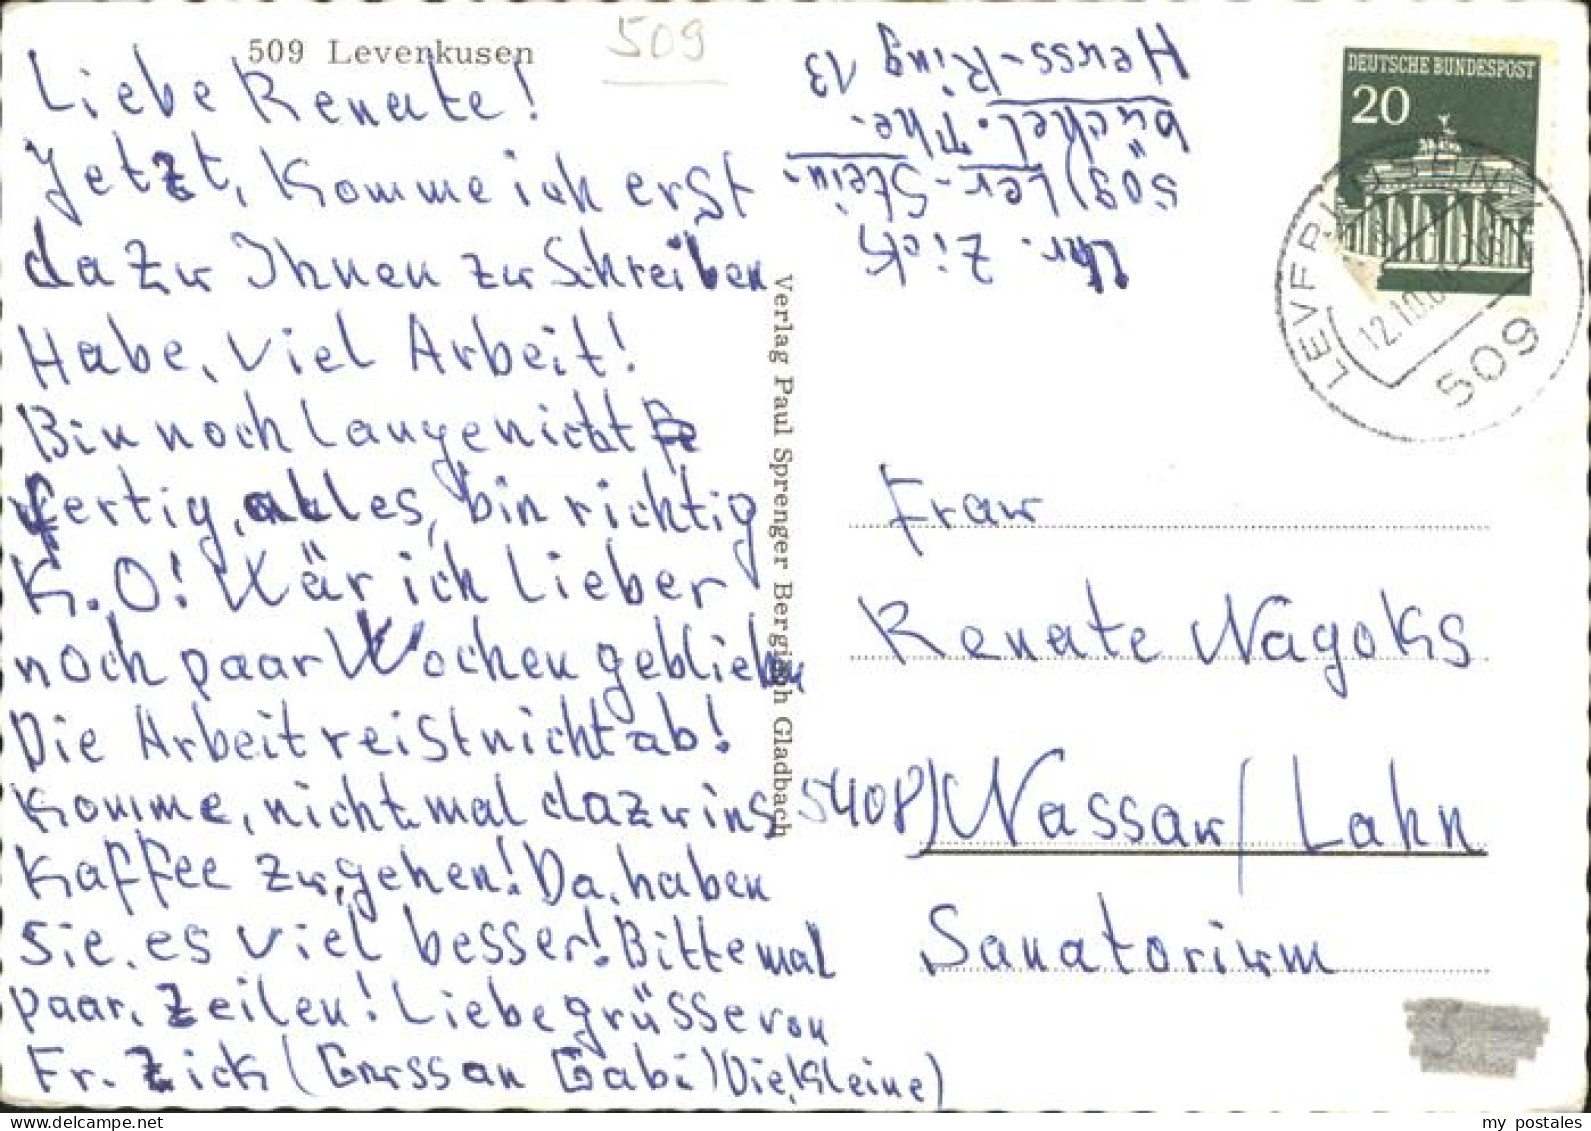 509 Levenkusen
509
Liebe Renate!
Jetzt, Komme ich erst
dazu Ihnen zu Schreiben
Habe, viel Arbeit!
Bin noch lange nicht
fertig, alles, bin richtig
K.O! Wär ich lieber
noch paar Wochen geblieben
Die Arbeit reist nicht ab!
Komme, nicht mal dazu ins
Kaffee zu, gehen! Da, haben
Sie, es viel besser! Bitte mal
paar, Zeilen! Liebe grüsse von
Fr. Zick (Gruss an Gabi) Die, Kleine)
Verlag Paul Sprenger Bergisch Gladbach
Chr. Zick
509) Lev-Stein-
büchel. The.
Heuss-Ring 13
DEUTSCHE BUNDESPOST
20
12.10.6
509
Frau
Renate Nagoks
5408) Nassau/Lahn
Sanatorium
my postales